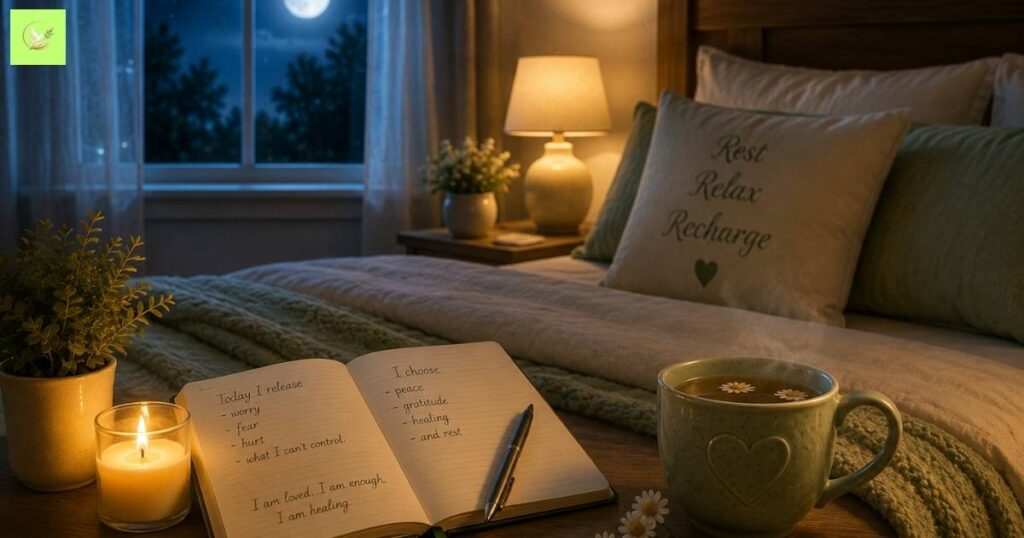 Rest
Relax
Recharge
Today I release:
- worry
- fear
- hurt
- what I can't control.
I am loved. I am enough.
I am healing.
I choose
- peace
- gratitude
- healing
- and rest